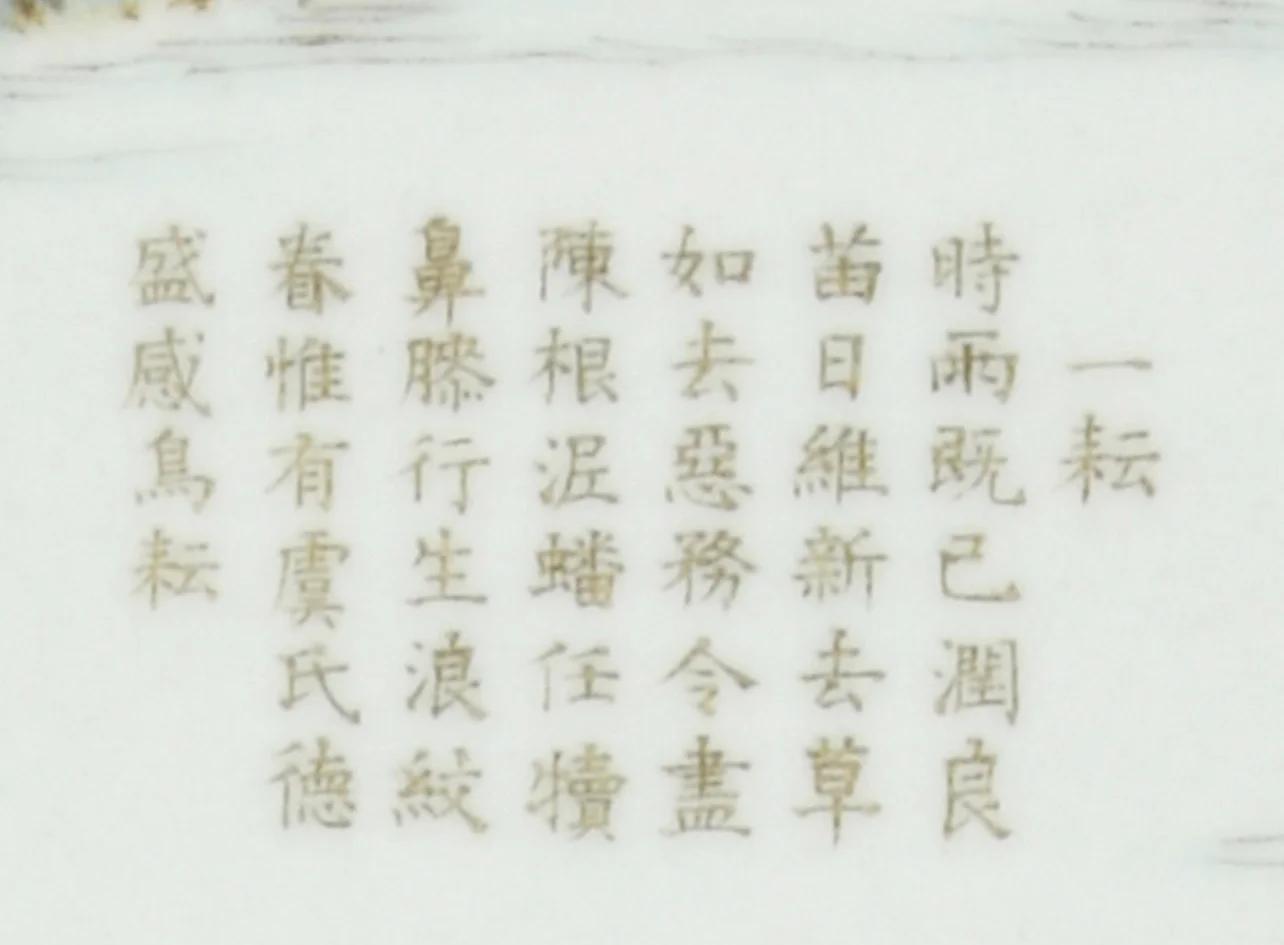 一耘
時雨既已潤良
苗日維新去草
如去惡務令盡
陳根泥蟠任犢
鼻膝行生浪紋
眷惟有虞氏德
盛感鳥耘